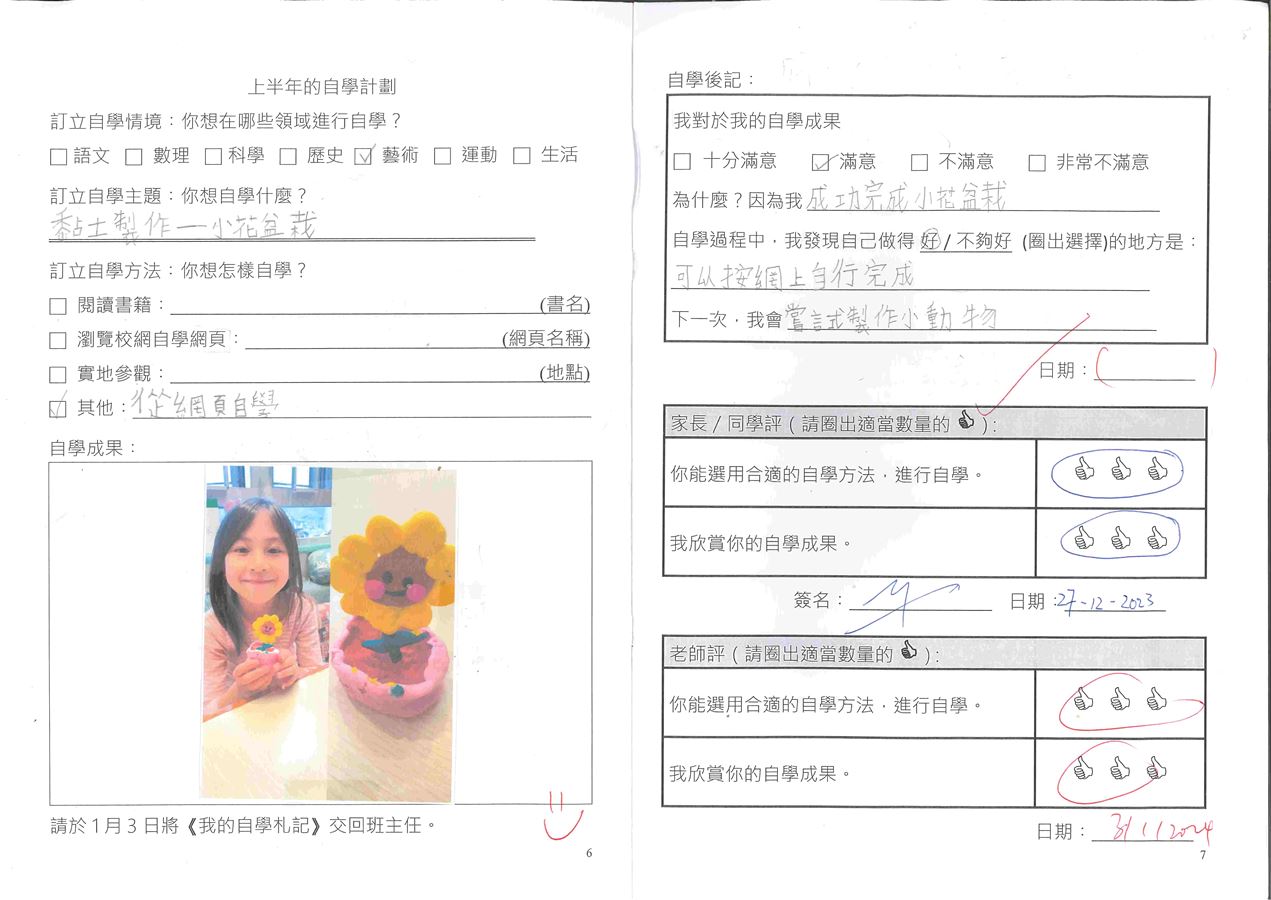 上半年的自學計劃
訂立自學情境：你想在哪些領域進行自學？
□語文 □ 數理 □科學 □ 歷史 ☑ 藝術 □ 運動 □ 生活
訂立自學主題：你想自學什麼？
黏土製作—小花盆栽
訂立自學方法：你想怎樣自學？
□ 閱讀書籍：(書名)
□ 瀏覽校網自學網頁：(網頁名稱)
□ 實地參觀：(地點)
☑ 其他：從網頁自學
自學成果：
請於1月3日將《我的自學札記》交回班主任。
6
自學後記：
我對於我的自學成果
□ 十分滿意 ☑滿意 □ 不滿意 □ 非常不滿意
為什麼？因為我成功完成小花盆栽
自學過程中，我發現自己做得 好 / 不夠好 (圈出選擇)的地方是：
可以按網上自行完成
下一次，我會嘗試製作小動物
日期：
家長 / 同學評 ( 請圈出適當數量的 👍 ):
你能選用合適的自學方法，進行自學。 👍 👍 👍
我欣賞你的自學成果。 👍 👍 👍
簽名： 日期：27-12-2023
老師評 ( 請圈出適當數量的 👍 ):
你能選用合適的自學方法，進行自學。 👍 👍 👍
我欣賞你的自學成果。 👍 👍 👍
日期：3/1/2024
7